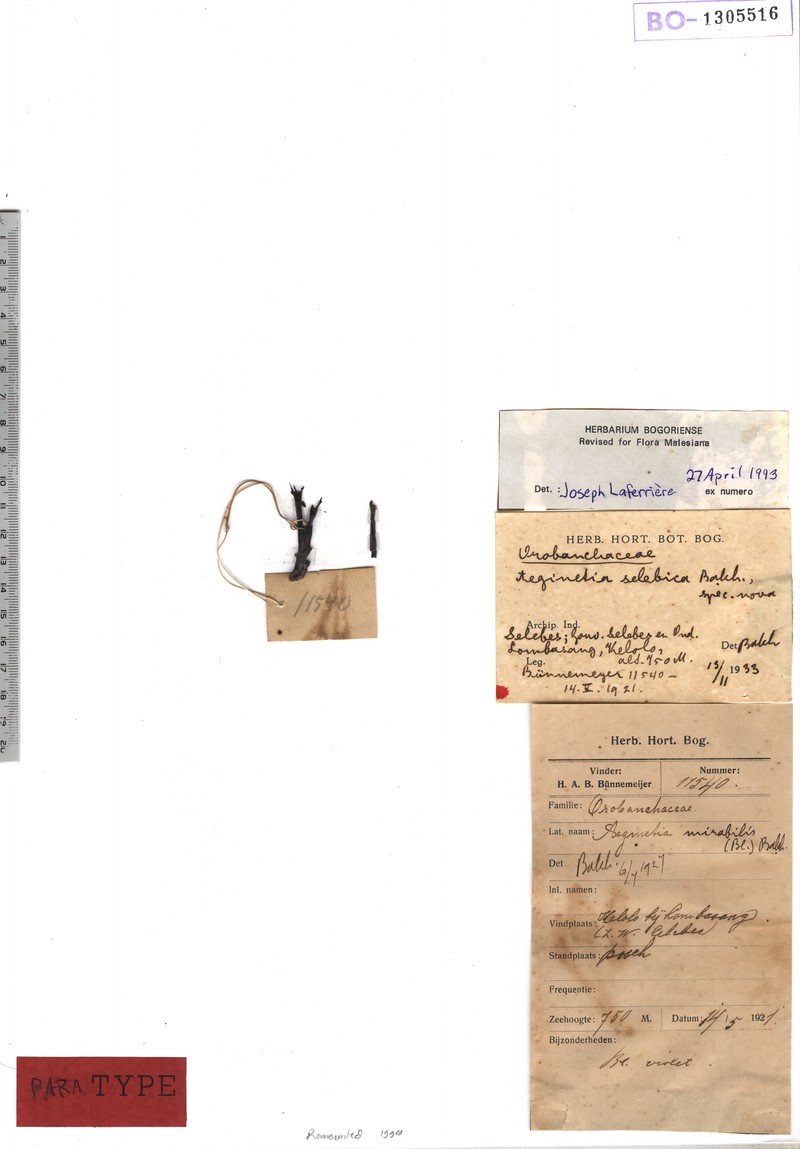 BO-1305516
HERBARIUM BOGORIENSE
Revised for Flora Malesiana
27 April 1993
Det. : Joseph Laferrière ex numero
HERB. HORT. BOT. BOG.
Orobanchaceae
Aeginetia selebica Bakh.,
spec. nova
Archip. Ind.
Selebes; Gouv. Selebes en Ond.
Lombasang, Kelolo,
Det. Bakh
Leg. alt. 750 M.
13/11 1933
Bünnemeyer 11540 -
14. V. 1921.
11540
Herb. Hort. Bog.
Vinder:
H. A. B. Bünnemeijer
Nummer:
11540.
Familie: Orobanchaceae.
Lat. naam: Aeginetia mirabilis
(Bl.) Bakh.
Det Bakh. 1927
Inl. namen:
Vindplaats: Kelolo bij Lombasang.
(Z. W. Celebes
Standplaats: bosch
Frequentie:
Zeehoogte: 750 M. Datum: 14/5 1921.
Bijzonderheden:
Bl. violet.
PARA TYPE
Remounted 1990
1 2 3 4 5 6 7 8 9 10 11 12 13 14 15 16 17 18 19 20